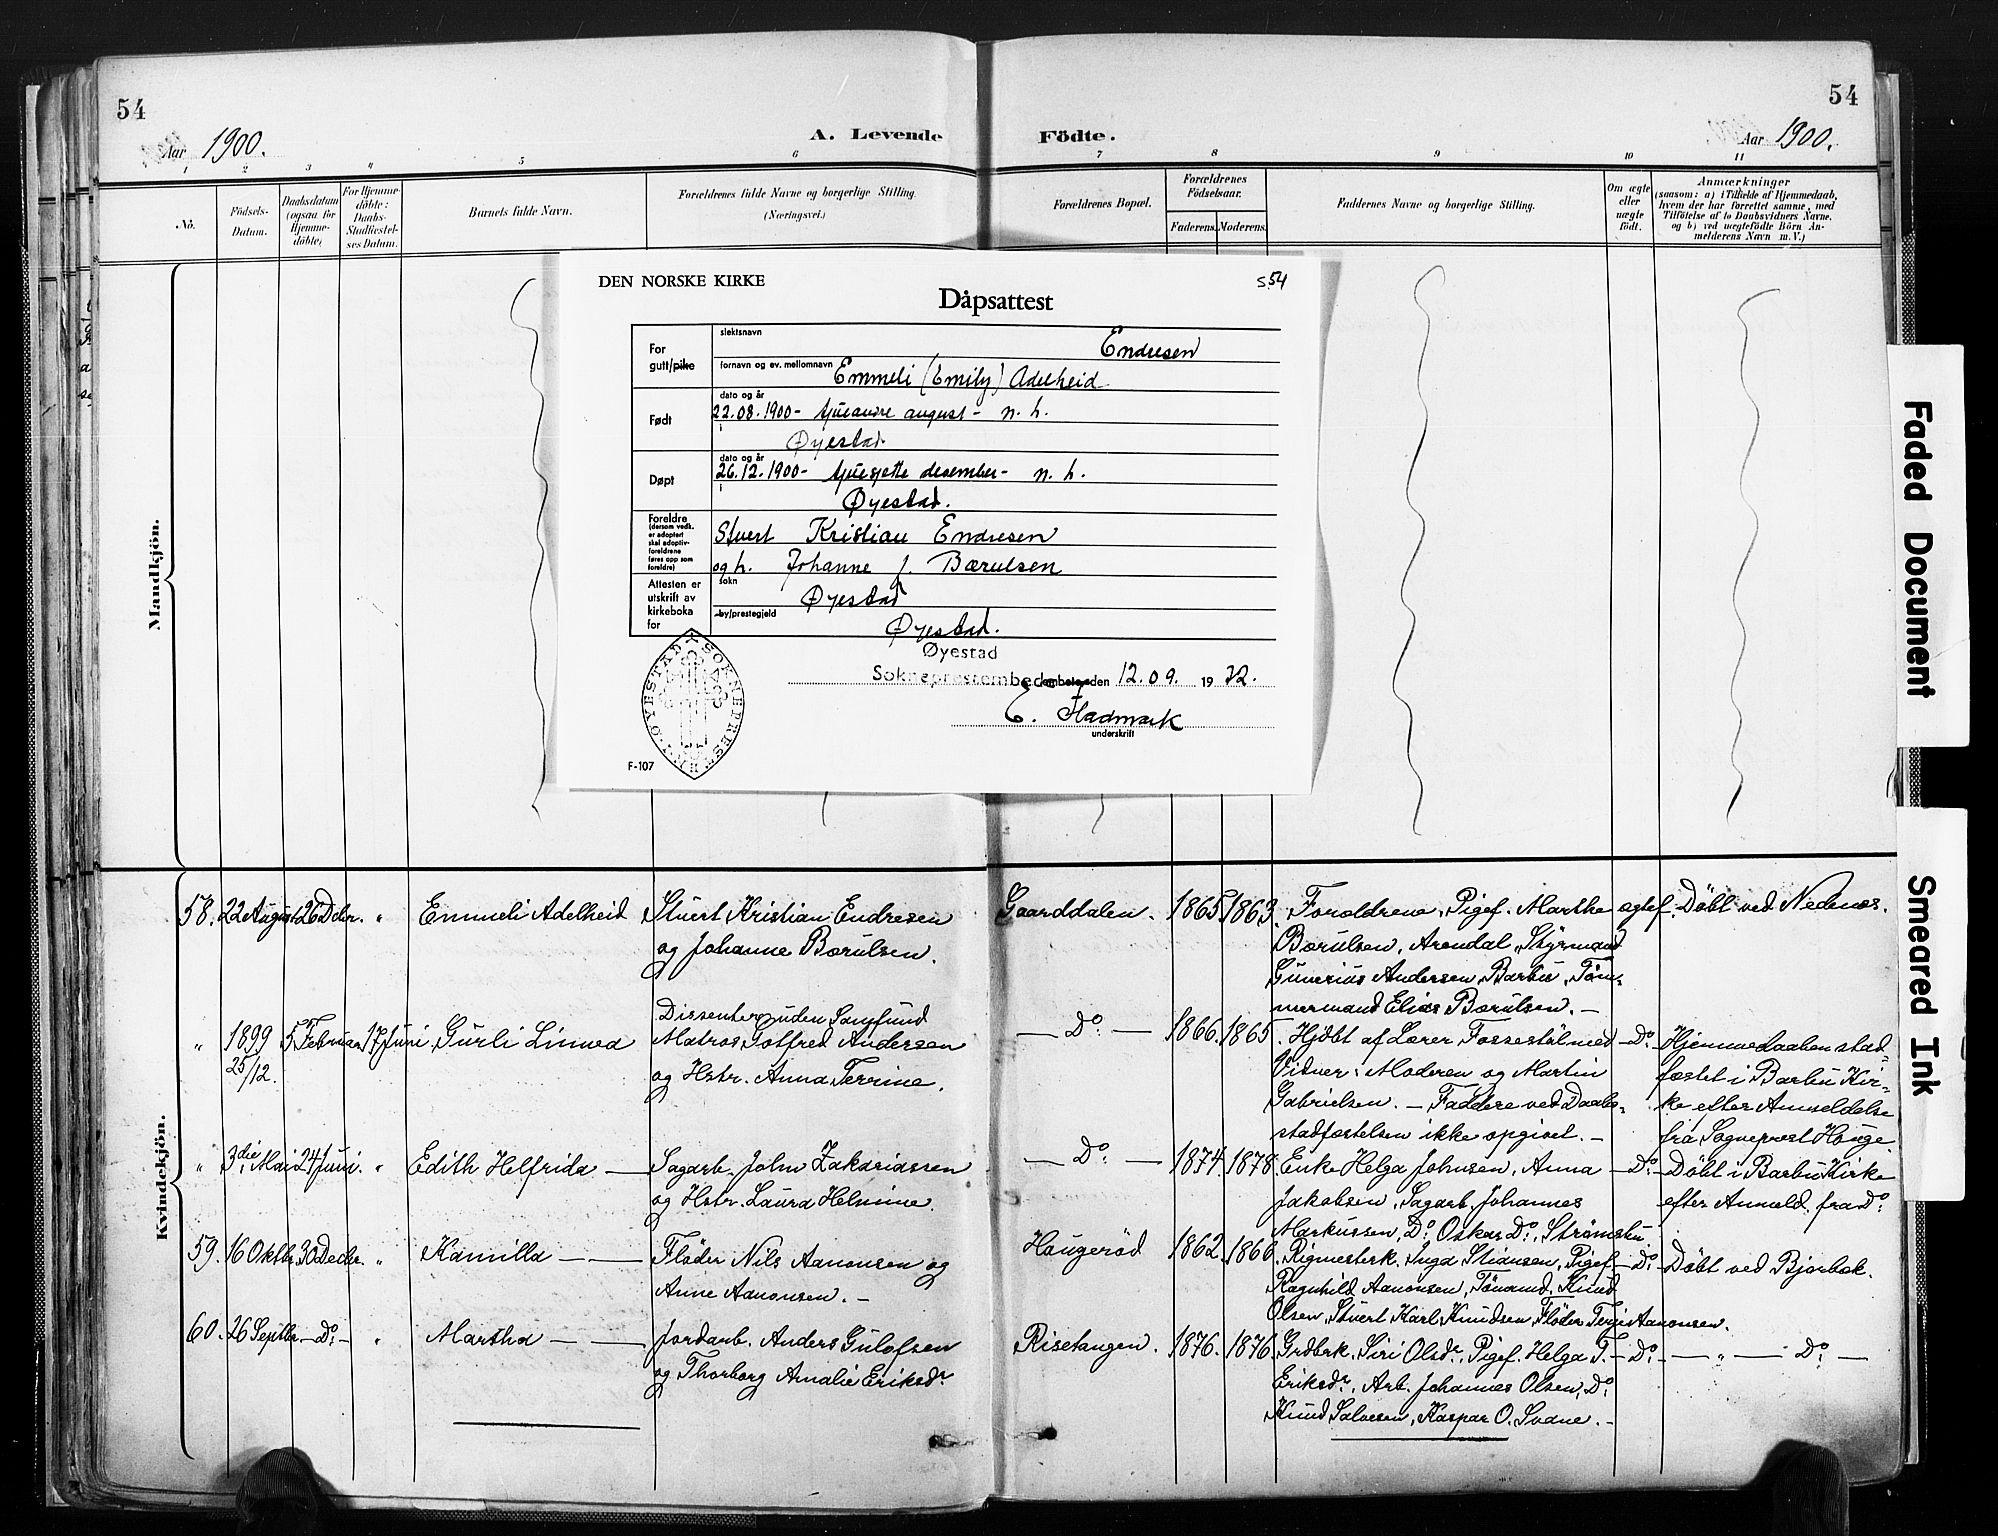 54
54
Aar 1900.
A. Levende
Födte.
Aar 1900.
1 2 3 4 5 6 7 8 9 10 11
No.
Födsels-
Datum.
Daabsdatum
(ogsaa for
Hjemme-
döbte)
For Hjemme-
döbte:
Daabs-
Stadfæstel-
ses Datum.
Barnets fulde Navn.
Forældrenes fulde Navne og borgerlige Stilling.
(Næringsvei.)
Forældrenes Bopæl.
Forældrenes
Födselsaar.
Faderens. Moderens.
Faddernes Navne og borgerlige Stilling.
Om ægte
eller
uægte
født.
Anmærkninger
(saasom: a) i Tilfælde af Hjemmedaab,
hvem der har forrettet samme, med
Tilføielse af to Daabsvidners Navne,
og b) ved uægtefödte Börn An-
melderens Navn m. V.)
Mandkjön.
DEN NORSKE KIRKE
S 54
Dåpsattest
For
gutt/pike
slektsnavn
Endresen
fornavn og ev. mellomnavn
Emmeli (Emily) Adelheid
Født
dato og år
22.08.1900 - tjueandre august - n. h.
i
Øyestad
Døpt
dato og år
26.12.1900 - tjuesjette desember - n. h.
i
Øyestad.
Foreldre
(dersom vedk.
er adoptert
skal adoptiv-
foreldrene
føres opp som
foreldre)
Stuert Kristian Endresen
og h. Johanne J. Bærulsen
Attesten er
utskrift av
kirkeboka
for
sokn
Øyestad
by/prestegjeld
Øyestad.
Øyestad
Sokneprestembede den 12.09. 1972.
E. Fladmark
underskrift
F-107
SOKNEPREST
ØYESTAD
Faded Document
Smeared Ink
Kvindekjön.
58. 22 August 26 Decbr. " Emmeli Adelheid
Stuert Kristian Endresen
og Johanne Børulsen.
Gaarddalen. 1865. 1863.
Forældrene, Pigef. Marthe
Børulsen, Arendal, Styrmand
Gunerius Andersen, Barbu, Töm-
mermand Elias Børulsen. -
ægtef. Döbt ved Nedenes.
" 1899
25/12. 5 Februar 17 Juni Gurli Linnea
Dissenter uden Samfund
Matros Gotfred Andersen
og Hstr. Anna Terrine.
— Do: — 1866. 1865.
Hjdbt af Lærer Fossestöl med
Vidner: Moderen og Martin
Gabrielsen. - Faddere ved Daabs-
stadfæstelsen ikke opgivet. -
Do. Hjemmedaaben stad-
fæstet i Barbu Kir-
ke efter Anmeldelse
fra Sogneprest Houge
" 3die Mai 24 Juni. " Edith Helfrida
Sagarb. John Zakariassen
og Hstr. Laura Helmine.
— Do: — 1874. 1878.
Enke Helga Johnsen, Anna
Jakobsen, Sagarb. Johannes
Markussen, Do. Oskar Do., Strömsbu.
Do. Döbt i Barbu Kirke
efter Anmeld. fra Do
59. 16 Oktbr. 30 Decbr. " Kamilla
Flöder Nils Aanonsen og
Anne Aanonsen. -
Hougeröd 1862. 1866.
Rigmesterk. Inga Stiansen, Pigef.
Ragnhild Aanonsen, Tömand. Knud
Olsen, Stuert Karl Knudsen, Flöder Terje Aanonsen.
Do. Döbt ved Bjorbæk.
60. 26 Septbr. — Do: — " Martha
Jordarb. Anders Gulofsen
og Thorborg Amalie Eriksdr.
Risetangen. 1876. 1876.
Grdbrk. Siri Olsdr., Pigef. Helga T.
Eriksdr., Arb. Johannes Olsen, Do.
Knud Salvesen, Kaspar O. Svane. -
Do. — " — Do. —